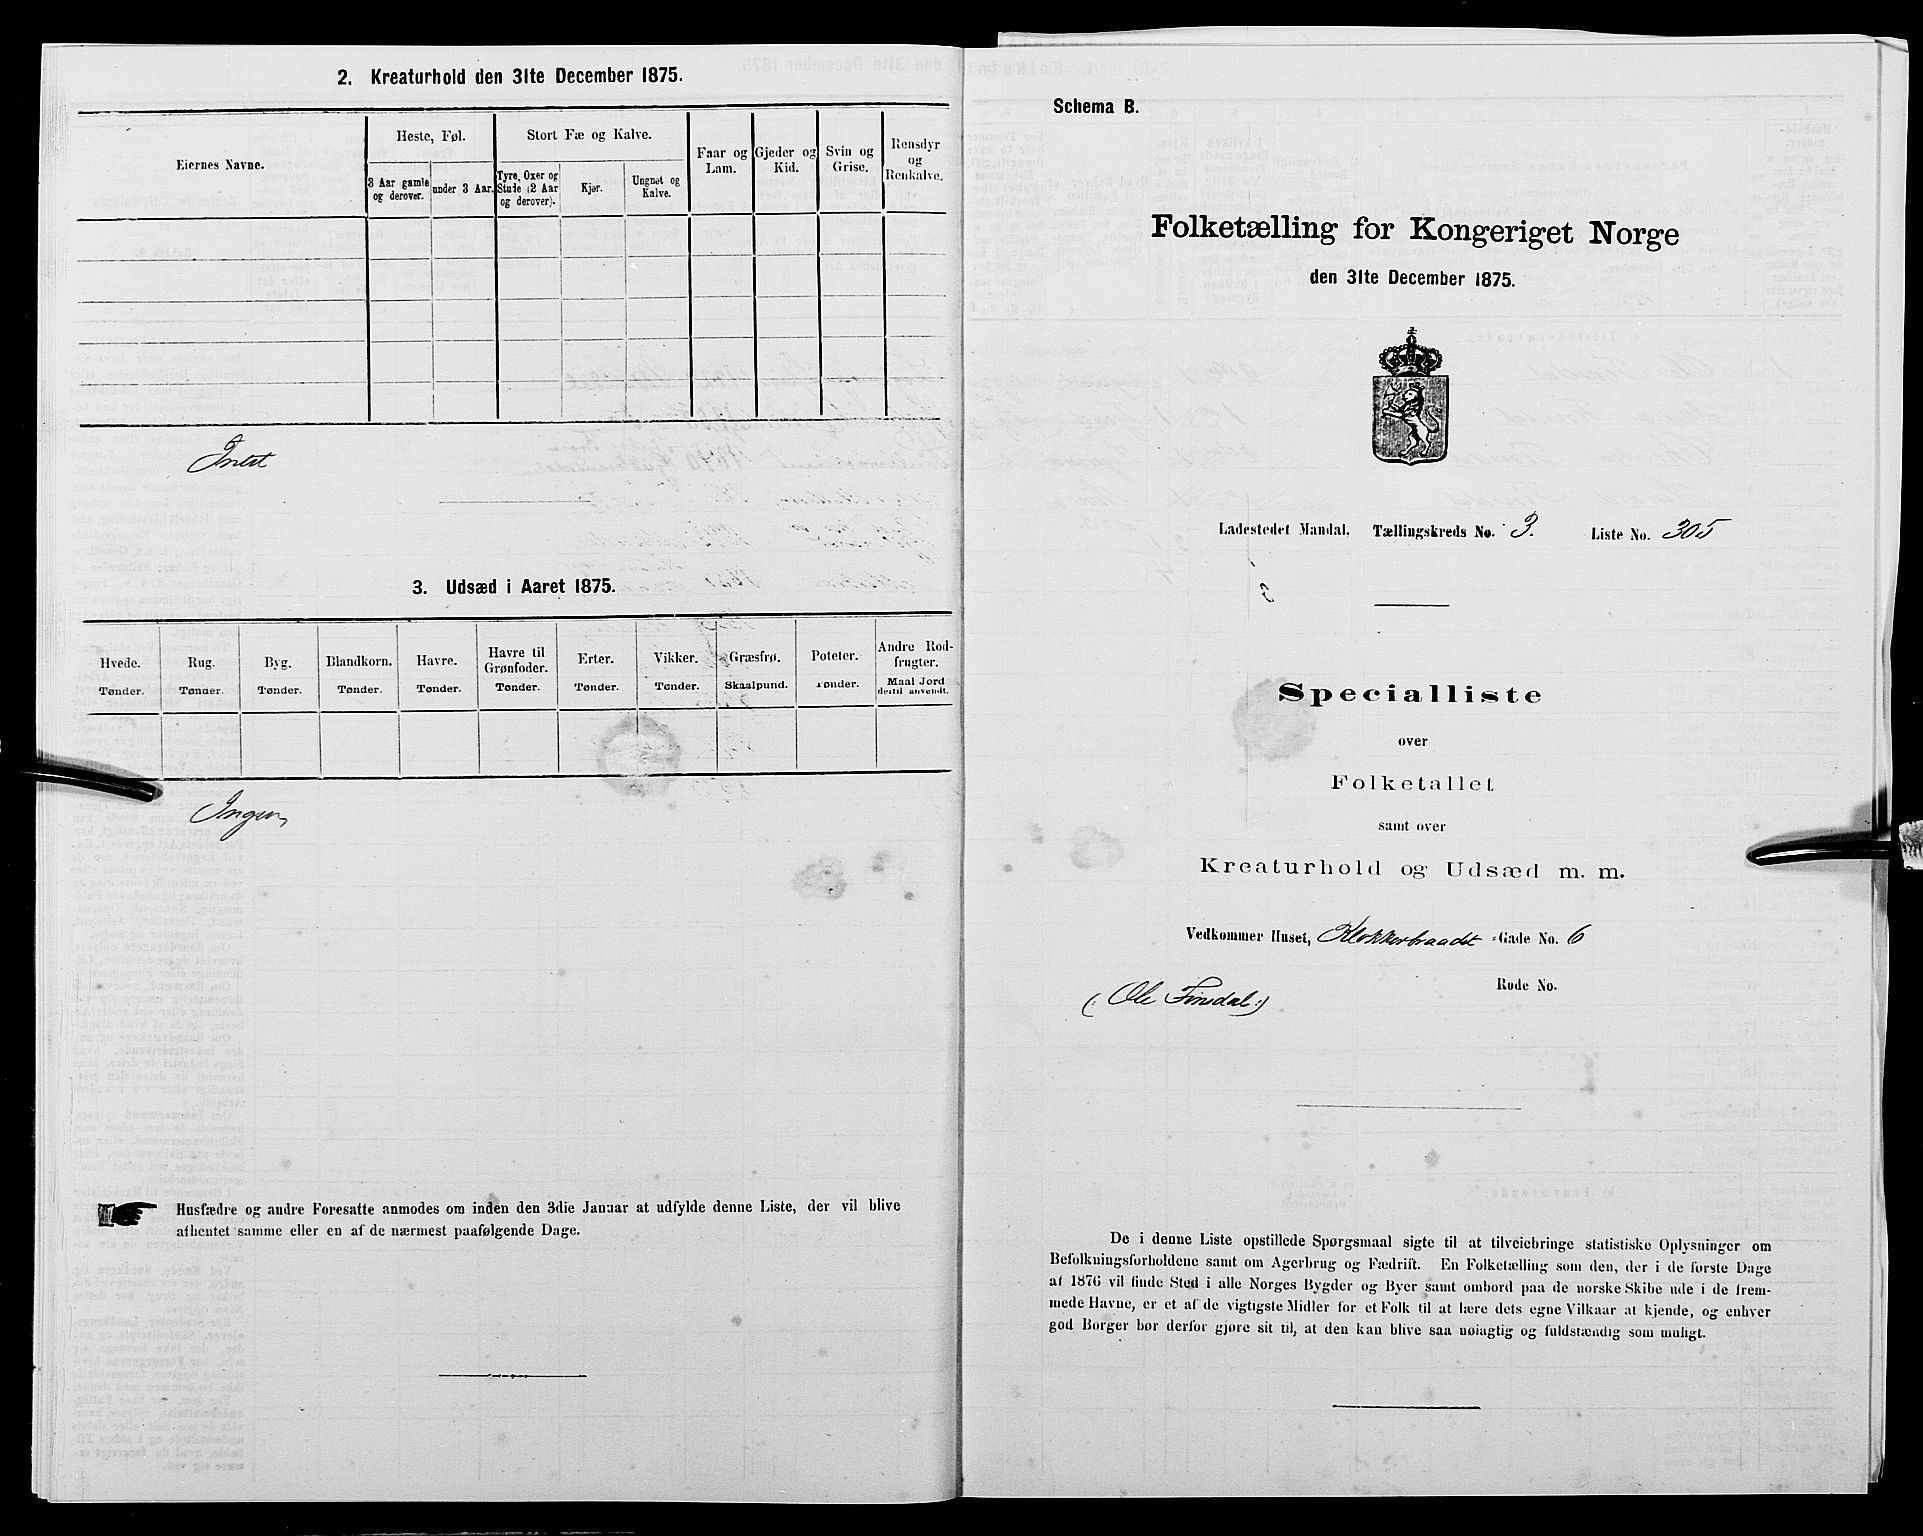 2. Kreaturhold den 31te December 1875.
Eiernes Navne.
Heste, Føl.
Stort Fæ og Kalve.
Faar og Lam.
Gjeder og Kid.
Svin og Grise.
Rensdyr og Renkalve.
3 Aar gamle og derover.
under 3 Aar.
Tyre, Oxer og Stude (2 Aar og derover).
Kjør.
Ungnøt og Kalve.
Intet
3. Udsæd i Aaret 1875.
Hvede. Rug. Byg. Blandkorn. Havre. Havre til Grønfoder. Erter. Vikker. Græsfrø. Poteter. Andre Rodfrugter.
Tønder. Tønder. Tønder. Tønder. Tønder. Tønder. Tønder. Tønder. Skaalpund. Tønder. Maal Jord dertil anvendt.
Ingen
Husfædre og andre Foresatte anmodes om inden den 3die Januar at udfylde denne Liste, der vil blive
afhentet samme eller en af de nærmest paafølgende Dage.
Schema B.
Folketælling for Kongeriget Norge
den 31te December 1875.
Ladestedet Mandal. Tællingskreds No. 3. Liste No. 305
Specialliste
over
Folketallet
samt over
Kreaturhold og Udsæd m. m.
Vedkommer Huset, Klokkerbraadet -Gade No. 6
Rode No.
(: Ole Finsdal :)
De i denne Liste opstillede Spørgsmaal sigte til at tilveiebringe statistiske Oplysninger om
Befolkningsforholdene samt om Agerbrug og Fædrift. En Folketælling som den, der i de første Dage
af 1876 vil finde Sted i alle Norges Bygder og Byer samt ombord paa de norske Skibe ude i de frem-
mede Havne, er et af de vigtigste Midler for et Folk til at lære dets egne Vilkaar at kjende, og enhver
god Borger bør derfor gjøre sit til, at den kan blive saa nøiagtig og fuldstændig som muligt.